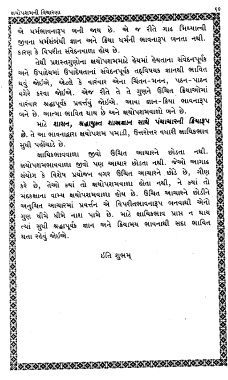 ક્ષયોપશમની વિચારણા
એ ધર્મભાવનારૂપ બની જાય છે. એ જ રીતે ગાઢ મિથ્યાત્વી
જીવના ધર્મસંબંધી જ્ઞાન અને ક્રિયા ધર્મની ભાવનારૂપ બનતા નથી.
કારણ કે વિપરીત સંવેદનવાળા હોય છે.
તેથી પ્રશસ્તગુણોના ક્ષયોપશમમાટે હેયમાં હેયતાના સંવેદનપૂર્વક
અને ઉપાદેયમાં ઉપાદેયતાના સંવેદનપૂર્વક તદ્વિષયક જ્ઞાનથી ભાવિત
થવું જોઈએ, એટલે કે વારંવાર એના ચિંતન-મનન, પઠન-પાઠન
વગેરે કરવા જોઈએ. એજ રીતે તે તે ગુણને ઉચિત ક્રિયાઓમાં
વારંવાર શ્રદ્ધાપૂર્વક પ્રવર્તવું જોઈએ. આવા જ્ઞાન-ક્રિયા ભાવનારૂપ
બને છે. આત્મા ભાવિત થાય છે અને ક્ષયોપશમવાળો બને છે.
માટે શાસન, શ્રદ્ધાયુક્ત શાસ્ત્રજ્ઞાન સાથે પંચાચારની ક્રિયારૂપ
છે. તે આ ભાવનાદ્વારા ક્ષયોપશમ પમાડી, ઉત્તરોત્તર વધારી ક્ષાયિકભાવ
સુધી પહોંચાડે છે.
ક્ષાયિકભાવવાળા જીવો ઉચિત આચારને છોડતા નથી.
ક્ષયોપશમભાવવાળા જીવો પણ આચાર છોડતા નથી. જેઓ આગાઢ
સંયોગ કે વિશેષ પ્રયોજન વગર ઉચિત આચારને છોડે છે, ગૌણ
કરે છે, તેઓ ક્યાં તો ક્ષયોપશમવાળા હોતા નથી, ને ક્યાં તો
મંદકક્ષાના ક્ષયોપશમવાળા હોય છે. ઉચિત આચારને છોડીને
અનુચિત આચારમાં પ્રવર્તન એ વિપરીતભાવનારૂપ બનવાથી એનો
ગુણ ધીમે ધીમે નાશ પામે છે. માટે ક્ષાયિકભાવ પ્રાપ્ત ન થાય
ત્યાં સુધી શ્રદ્ધાપૂર્વક જ્ઞાન અને ક્રિયામય ભાવનાથી સદા ભાવિત
થતા રહેવું જોઈએ.
ઈતિ શુભમ્